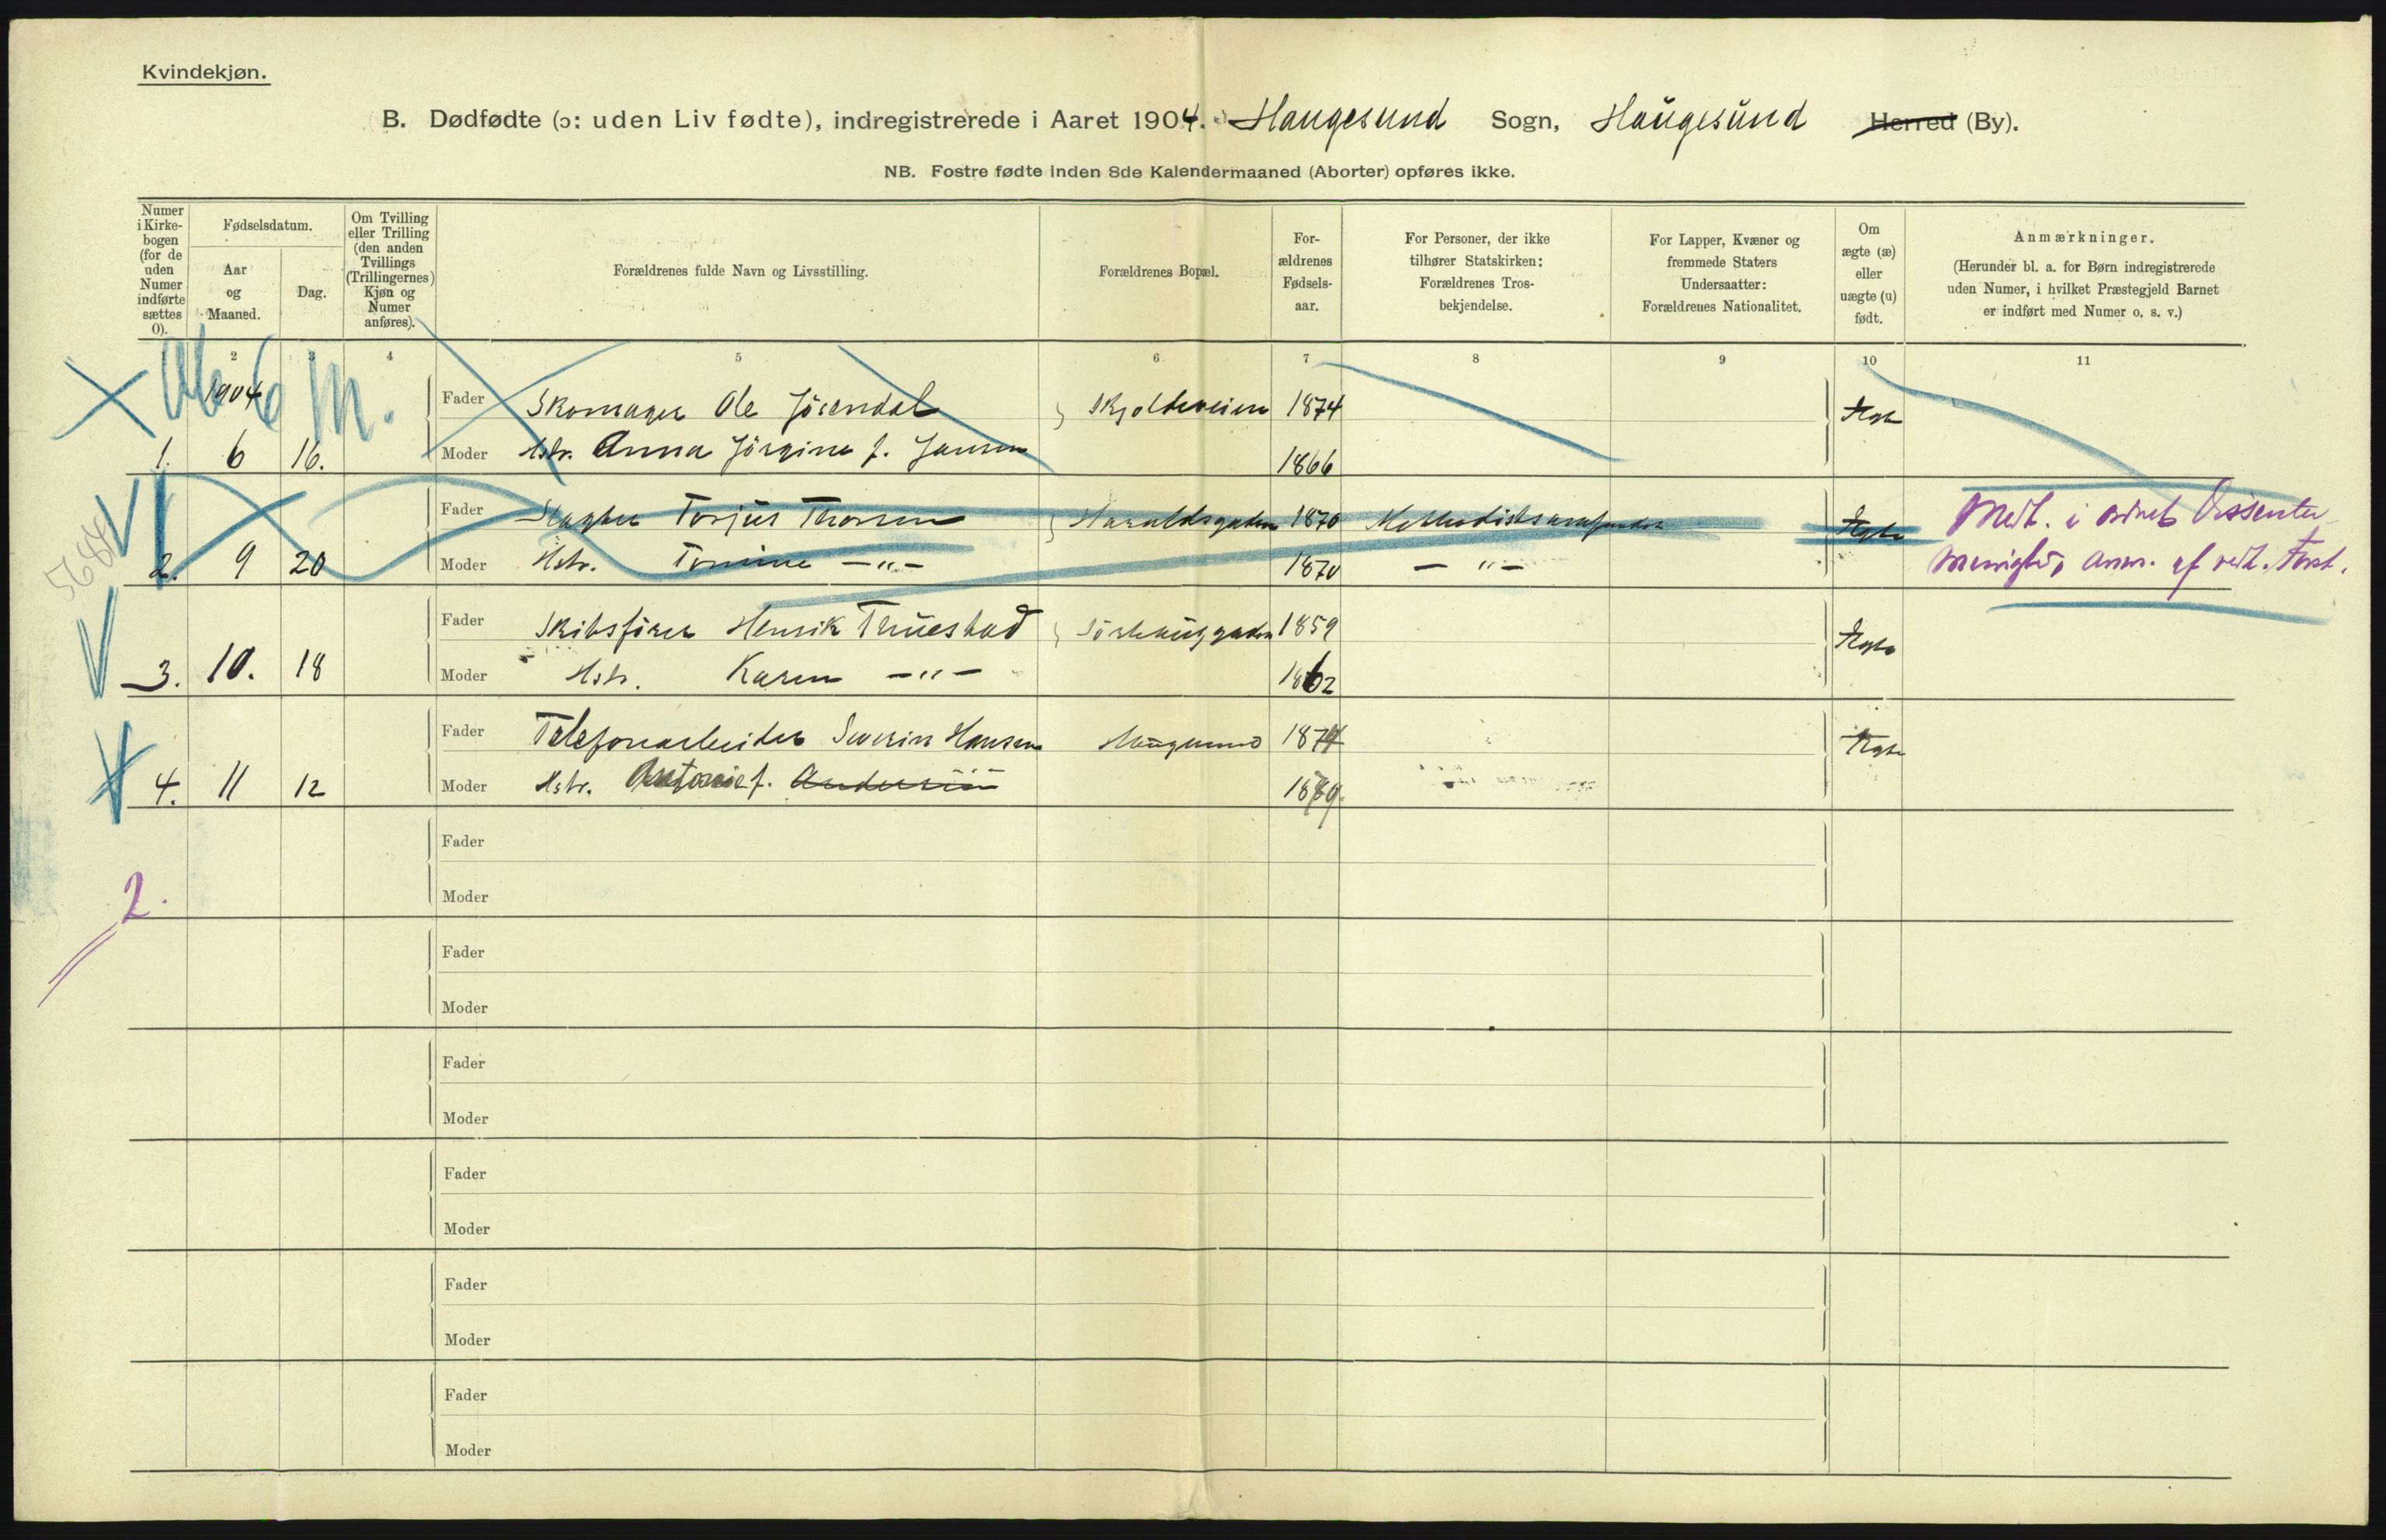 Kvindekjøn.
B. Dødfødte (ɔ: uden Liv fødte), indregistrerede i Aaret 1904. Haugesund Sogn, Haugesund Herred (By).
NB. Fostre fødte inden 8de Kalendermaaned (Aborter) opføres ikke.
Numer i Kirke-bogen (for de uden Numer indførte sættes 0).
Fødselsdatum.
Aar og Maaned.
Dag.
Om Tvilling eller Trilling (den anden Tvillings (Trillingernes) Kjøn og Numer anføres).
Forældrenes fulde Navn og Livsstilling.
Forældrenes Bopæl.
For-ældrenes Fødsels-aar.
For Personer, der ikke tilhører Statskirken: Forældrenes Tros-bekjendelse.
For Lapper, Kvæner og fremmede Staters Undersaatter: Forældrenes Nationalitet.
Om ægte (æ) eller uægte (u) født.
Anmærkninger.
(Herunder bl. a. for Børn indregistrerede uden Numer, i hvilket Præstegjeld Barnet er indført med Numer o. s. v.)
2 3 4 5 6 7 8 9 10 11
1904 Fader Skomager Ole Jösendal Skjoldeveien 1874 Ægte
1. 6 16. Moder Hstr. Anna Jörgine f. Jansen 1866
Fader Slagter Torjus Thorsen Haraldsgaden 1870 Methodistsamfundet Ægte
2. 9 20 Moder Hstr. Tomine —"— 1870 — " —
Medt. i ordnet Dissenter
menighed, anm. af vedk. Forst.
5684
Fader Skibsfører Henrik Thuestad Sörhauggaden 1859 Ægte
3. 10. 18 Moder Hstr. Karen —"— 1862
Fader Telefonarbeider Severin Hansen Haugesund 1874 Ægte
4. 11 12 Moder Hstr. Antonie f.
Fader
2. Moder
Fader
Moder
Fader
Moder
Fader
Moder
Fader
Moder
Fader
Moder